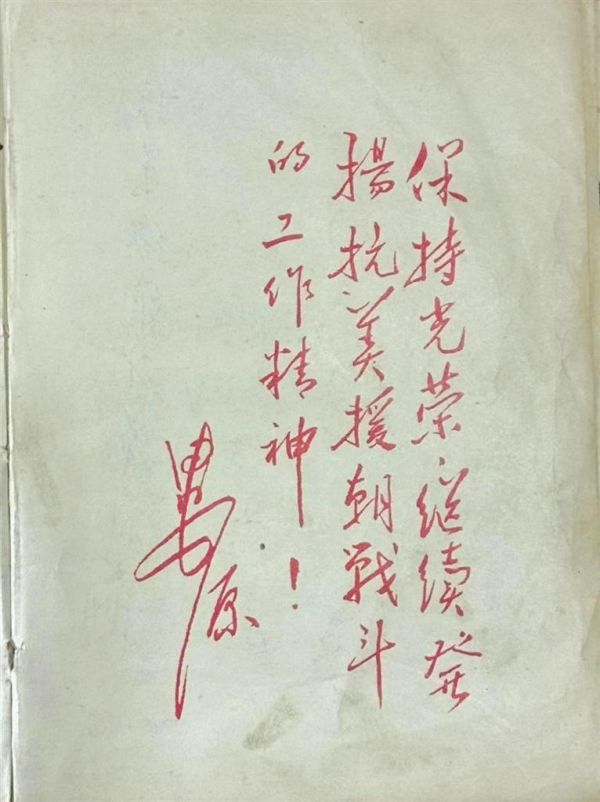 保持光荣、继续發
揚抗美援朝战斗
的工作精神！
原